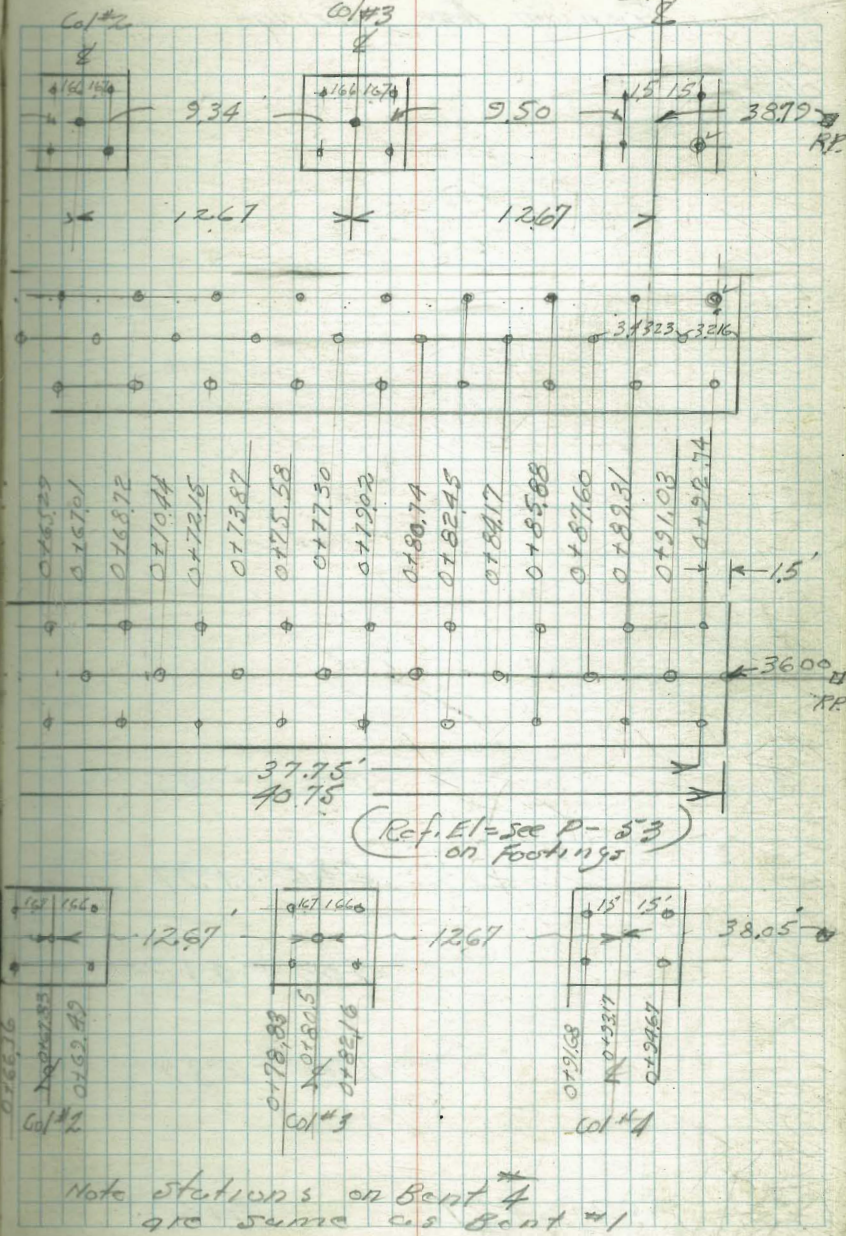 Col #2
Col #3
℄ ℄ ℄
166 167 166 167 1.5 1.5'
9.34 9.50 38.79
R.P.
12.67 12.67
3.4323 3.216
0+65.29
0+67.01
0+68.72
0+70.44
0+72.15
0+73.87
0+75.58
0+77.30
0+79.02
0+80.74
0+82.45
0+84.17
0+85.88
0+87.60
0+89.31
0+91.03
0+92.74
1.5'
36.00
R.P.
37.75'
40.75
(Ref. El = See P- 53)
on Footings
167 166 167 166 1.5 1.5'
12.67' 12.67 38.05'
0+66.16
0+67.83
0+69.49
0+78.83
0+80.5
0+82.16
0+91.68
0+93.17
0+94.67
Col #2 Col #3 Col #4
Note Stations on Bent #4
are same as Bent #1